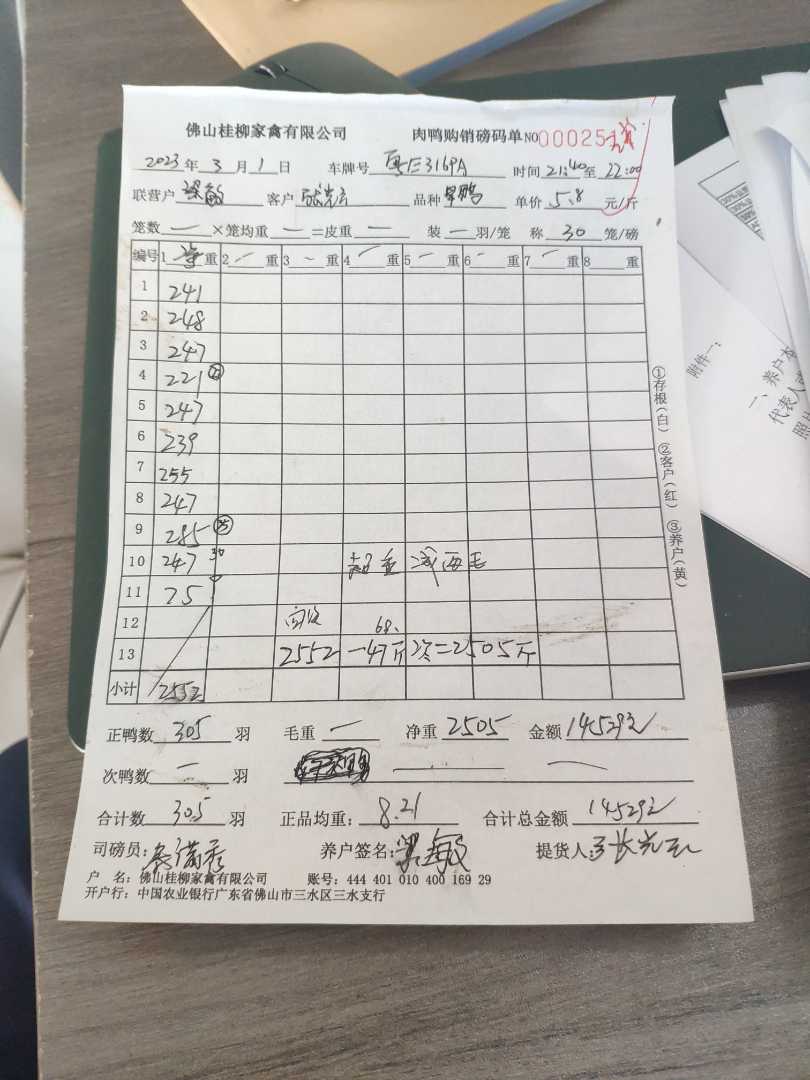 佛山桂柳家禽有限公司 肉鸭购销磅码单 NO 000251
2023年 3月 1日 车牌号 粤E3169A 时间 21:40 至 22:00
联营户 梁敏 客户 品种 单价 5.8 元/斤
笼数 一 ×笼均重 一 =皮重 一 装 一 羽/笼 称 30 笼/磅
编号 1 重 2 一 重 3 一 重 4 一 重 5 一 重 6 一 重 7 一 重 8 重
1 241
2 248
3 247
4 221
5 247
6 239
7 255
8 247
9 285 25
10 247 30 超重 减两毛
11 75
12 68.
13 2552 -47斤 2505斤
小计 2552
正鸭数 305 羽 毛重 一 净重 2505 金额 14529元
次鸭数 一 羽
合计数 305 羽 正品均重: 8.21 合计总金额 14529元
司磅员: 养户签名: 梁敏 提货人:
户 名: 佛山桂柳家禽有限公司 账号: 444 401 010 400 169 29
开户行: 中国农业银行广东省佛山市三水区三水支行
①存根(白) ②客户(红) ③养户(黄)
附件一:
一、养户本
代表人
照片